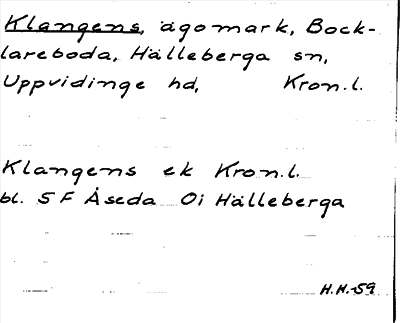 Klangens, ägomark, Bock-
lareboda, Hälleberga sn,
Uppvidinge hd, Kron.l.
Klangens ek Kron.l.
bl. 5 F Åseda Oi Hälleberga
H.H.-59